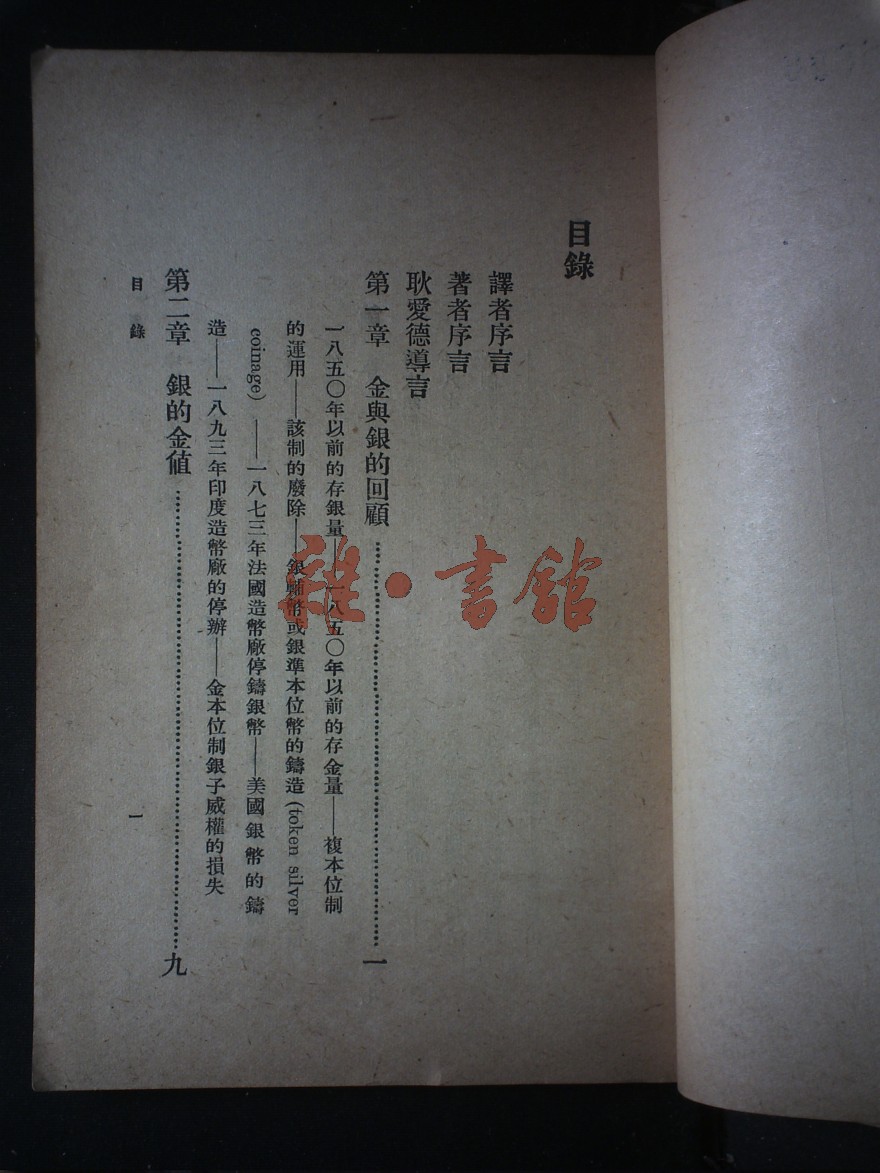 目錄
譯者序言
著者序言
耿愛德導言
第一章　金與銀的回顧……一
一八五〇年以前的存銀量——一八五〇年以前的存金量——複本位制
的運用——該制的廢除——銀輔幣或銀準本位幣的鑄造(token silver
coinage)——一八七三年法國造幣廠停鑄銀幣——美國銀幣的鑄
造——一八九三年印度造幣廠的停辦——金本位制銀子威權的損失
第二章　銀的金値……九
目錄
一
雜·書館